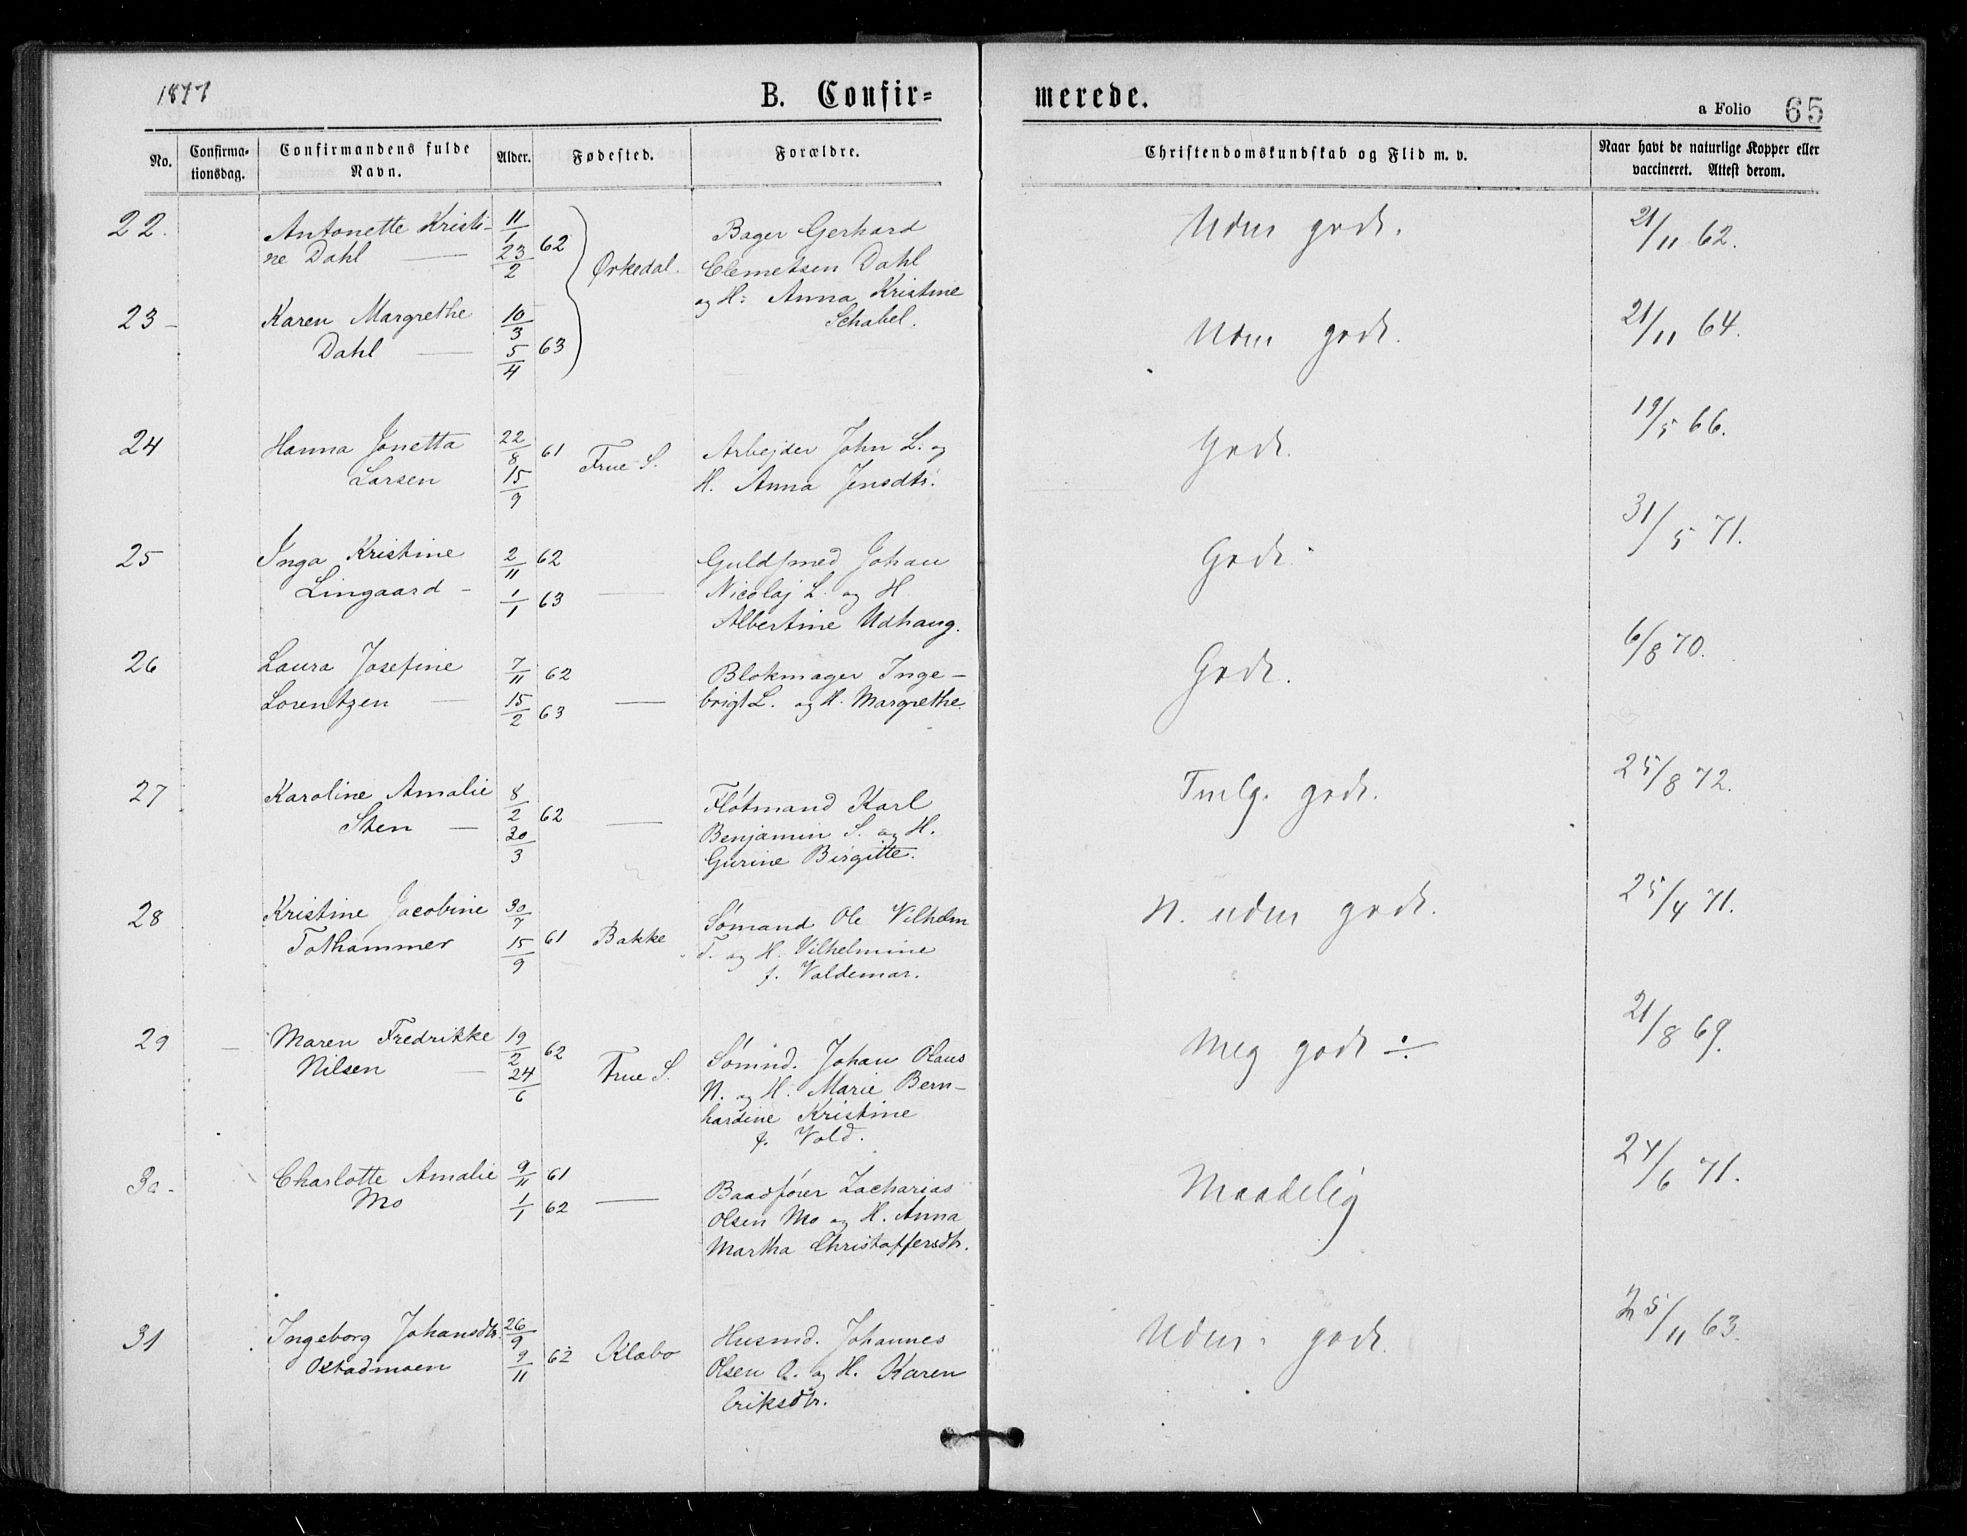 1877
B. Confir=
merede.
a Folio 65
No.
Confirma-
tionsdag.
Confirmandens fulde
Navn.
Alder.
Fødested.
Forældre.
Christendomskundskab og Flid m. v.
Naar havt de naturlige Kopper eller
vaccineret. Attest derom.
22.
Antonette Kristi-
ne Dahl —
11/1 23/2 62
Ørkedal.
Bager Gerhard
Clemetsen Dahl
og H: Anna Kristine
Schabel.
Udm godt.
21/11 62.
23 -
Karen Margrethe
Dahl —
10/3 5/4 63
Udm godt.
21/11 64.
24
Hanna Jonetta
Larsen
22/8 15/9 61
Frue S.
Arbejder John L. og
H. Anna Jensdtr.
Godt.
19/5 66.
25
Inga Kristine
Lingaard -
2/11 62
1/1 63
—
Guldsmed Johan
Nicolaj L. og H.
Albertine Udhaug.
Godt.
31/5 71.
26
Laura Josefine
Lorentzen —
7/11 62
15/2 63
—
Blokmager Inge-
brigt L. og H. Margrethe.
Godt.
6/8 70.
27
Karoline Amalie
Sten —
8/2 30/3 62
—
Fløtmand Karl
Benjamin S. og H.
Gurine Birgitte.
Tmlg. godt.
25/8 72.
28
Kristine Jacobine
Tothammer
30/7 15/9 61
Bakke
Sømand Ole Vilhelm
T. og H. Vilhelmine
f. Valdemar.
N. udm godt.
25/4 71.
29
Maren Fredrikke
Nilsen —
19/2 24/6 62
Frue S.
Sømnd. Johan Olaus
N. og H. Marie Bern-
hardine Kristine
f. Vold.
Meg godt ÷
21/8 69.
30 -
Charlotte Amalie
Mo
9/11 61
1/1 62
—
Baadfører Zacharias
Olsen Mo og H. Anna
Martha Christoffersdtr.
Maadelig
24/6 71.
31
Ingeborg Johansdtr.
Ostadmoen
26/9 9/11 62
Klæbo
Husmd. Johannes
Olsen O. og H. Karen
Eriksdtr.
Udm. godt.
25/11 63.